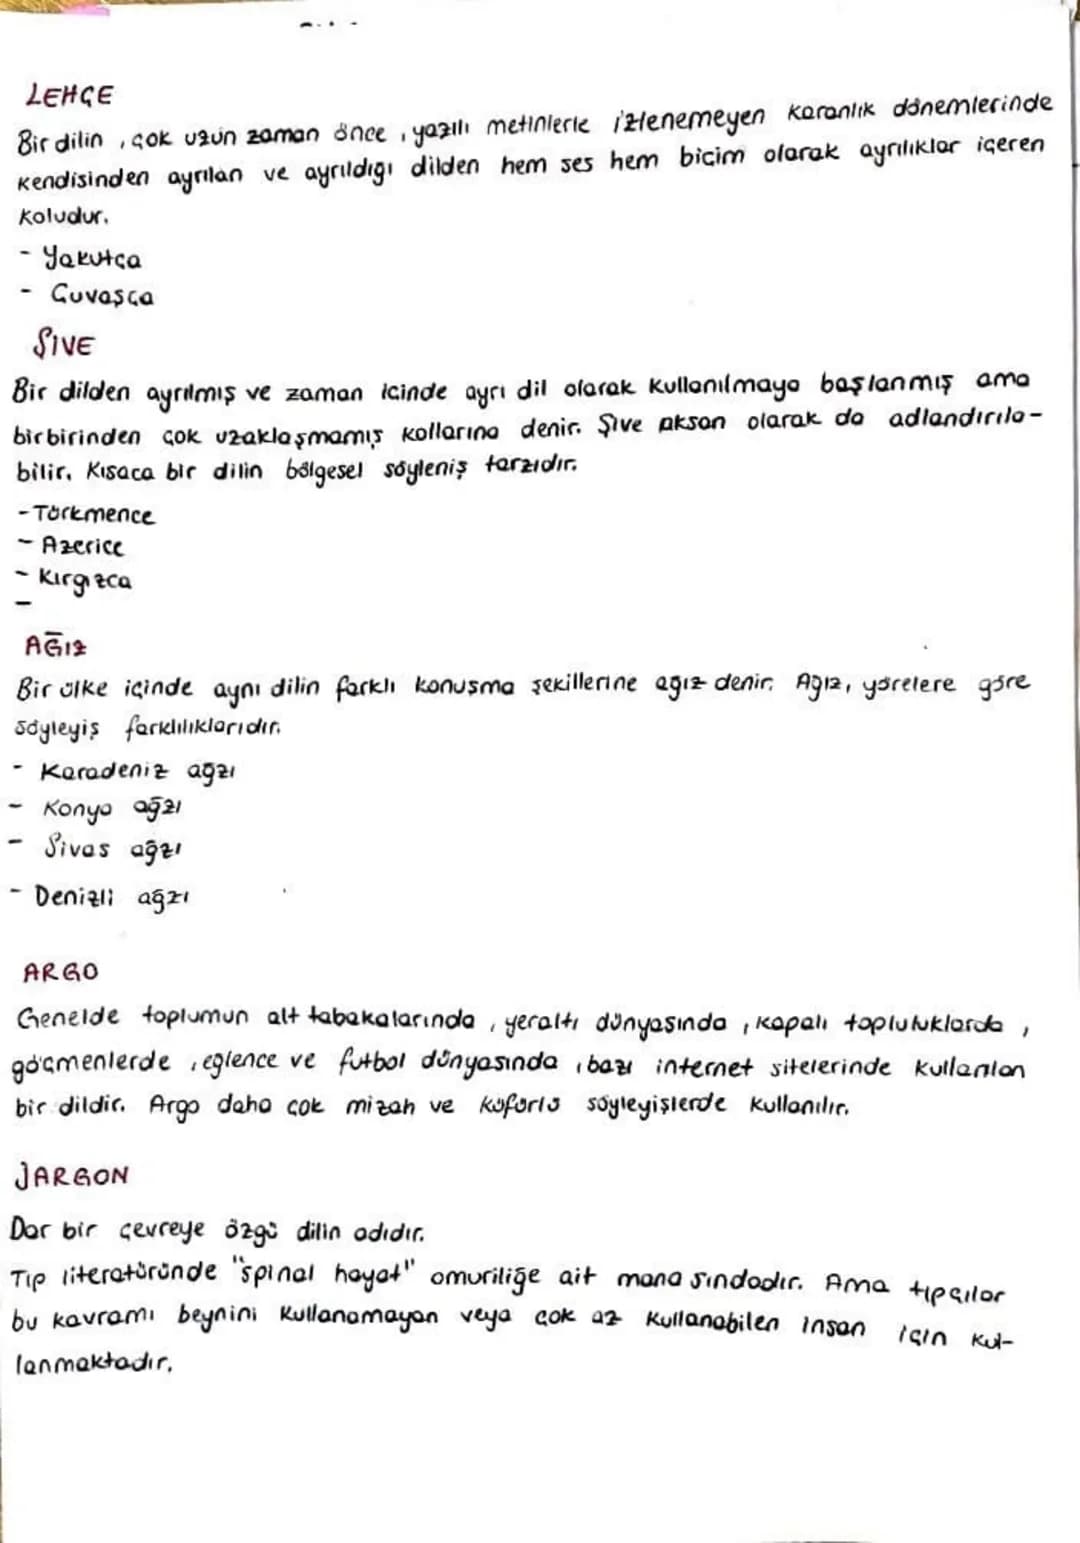 LEHÇE
Bir dilin, çok uzun zaman önce, yazılı metinlerle izlenemeyen karanlık dönemlerinde
kendisinden ayrılan ve ayrıldığı dilden hem ses hem biçim olarak ayrılıklar içeren
koludur.
- Yakutça
- Çuvaşça
ŞİVE
Bir dilden ayrılmış ve zaman içinde ayrı dil olarak kullanılmaya başlanmış ama
birbirinden çok uzaklaşmamış kollarına denir. Şive aksan olarak da adlandırıla-
bilir. Kısaca bir dilin bölgesel söyleniş tarzıdır.
- Türkmence
- Azerice
- Kırgızca
-
AĞIZ
Bir ülke içinde aynı dilin farklı konuşma şekillerine ağız denir. Ağız, yörelere göre
söyleyiş farklılıklarıdır.
- Karadeniz ağzı
- Konya ağzı
- Sivas ağzı
- Denizli ağzı
ARGO
Genelde toplumun alt tabakalarında, yeraltı dünyasında, kapalı topluluklarda,
göçmenlerde, eğlence ve futbol dünyasında, bazı internet sitelerinde kullanılan
bir dildir. Argo daha çok mizah ve küfürlü söyleyişlerde kullanılır.
JARGON
Dar bir çevreye özgü dilin adıdır.
Tıp literatüründe "spinal hayat" omuriliğe ait manasındadır. Ama tıpçılar
bu kavramı beynini kullanamayan veya çok az kullanabilen insan için kul-
lanmaktadır.